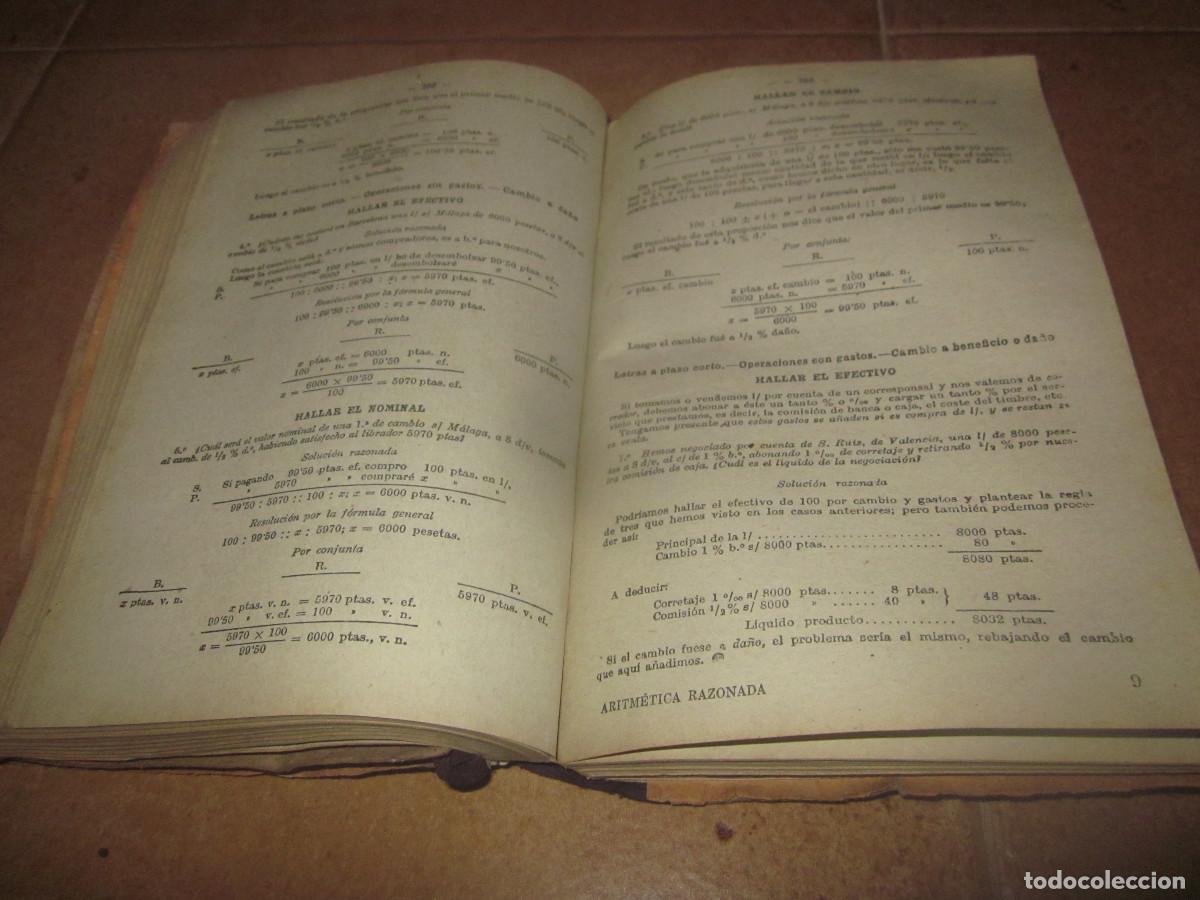 El resultado de la
cambio fué 1/2 % b.º
Por conjunta
B.
R.
P.
x ptas. ef. cambio
= 100 ptas. n.
100 ptas. n.
= 100'50 ptas. ef.
Luego el cambio es a 1/2 % beneficio.
Letras a plazo corto. — Operaciones sin gastos. — Cambio a daño
HALLAR EL EFECTIVO
4.º ¿Cuánto me costará en Barcelona una l/ s/ Málaga de 6000 pesetas, a 8 d/v, al
cambio de 1/2 % daño?
Solución razonada
Como el cambio está a d.º y somos compradores, es a b.º para nosotros.
Luego la cuestión será:
S. Si para comprar 100 ptas. en l/ he de desembolsar 99'50 ptas. ef.
P. » » 6000 » » desembolsaré x » »
100 : 99'50 :: 6000 : x; x = 5970 ptas. ef.
Resolución por la fórmula general
100 : 99'50 :: 6000 : x; x = 5970 ptas.
Por conjunta
R.
B.
P.
x ptas. ef.
6000 ptas. n.
x ptas. ef. = 6000 ptas. n.
100 » n. = 99'50 » ef.
x = 6000 × 99'50 / 100 = 5970 ptas. ef.
HALLAR EL NOMINAL
5.º ¿Cuál será el valor nominal de una 1.ª de cambio s/ Málaga, a 8 d/v, tomada
al camb. de 1/2 % d.º, habiendo satisfecho al librador 5970 ptas?
Solución razonada
S. Si pagando 99'50 ptas. ef. compro 100 ptas. en l/,
P. » » 5970 » » compraré x » »
99'50 : 5970 :: 100 : x; x = 6000 ptas. v. n.
Resolución por la fórmula general
100 : 99'50 :: x : 5970; x = 6000 pesetas.
Por conjunta
R.
B.
P.
x ptas. v. n.
5970 ptas. v. ef.
x ptas. v. n. = 5970 ptas. v. ef.
99'50 » v. ef. = 100 » v. n.
x = 5970 × 100 / 99'50 = 6000 ptas., v. n.
HALLAR EL CAMBIO
Solución razonada
6000 : 100 :: 5970 : x; x = 99'50 ptas. ef.
Resolución por la fórmula general
100 : 100 ± x (+ o — el cambio) :: 6000 : 5970
El resultado de esta proporción nos dice que el valor del primer medio es 99'50,
luego el cambio fué a 1/2 % d.º
Por conjunta
B.
R.
P.
x ptas. ef. cambio
100 ptas. n.
x ptas. ef. cambio = 100 ptas. n.
6000 ptas. n. = 5970 » ef.
x = 5970 × 100 / 6000 = 99'50 ptas. ef.
Luego el cambio fué a 1/2 % daño.
Letras a plazo corto. — Operaciones con gastos. — Cambio a beneficio o daño
HALLAR EL EFECTIVO
Si tomamos o vendemos l/ por cuenta de un corresponsal y nos valemos de co-
rredor, debemos abonar a éste un tanto % o º/ºº y cargar un tanto % por el ser-
vicio que prestamos, es decir, la comisión de banca o caja, el coste del timbre, etc.
Tengamos presente que estos gastos se añaden si es compra de l/, y se restan si
es venta.
7.º Hemos negociado por cuenta de S. Ruiz, de Valencia, una l/ de 8000 pese-
tas a 8 d/v, al c/ de 1 % b.º, abonando 1 º/ºº de corretaje y retirando 1/2 % por nues-
tra comisión de caja. ¿Cuál es el líquido de la negociación?
Solución razonada
Podríamos hallar el efectivo de 100 por cambio y gastos y plantear la regla
de tres que hemos visto en los casos anteriores; pero también podemos proce-
der así:
Principal de la l/ ........................ 8000 ptas.
Cambio 1 % b.º s/ 8000 ptas..................... 80 »
8080 ptas.
A deducir:
Corretaje 1 º/ºº s/ 8000 ptas....... 8 ptas.
Comisión 1/2 % s/ 8000 » ...... 40 » } 48 ptas.
Líquido producto............ 8032 ptas.
Si el cambio fuese a daño, el problema sería el mismo, rebajando el cambio
que aquí añadimos.
ARITMÉTICA RAZONADA
9
todocoleccion